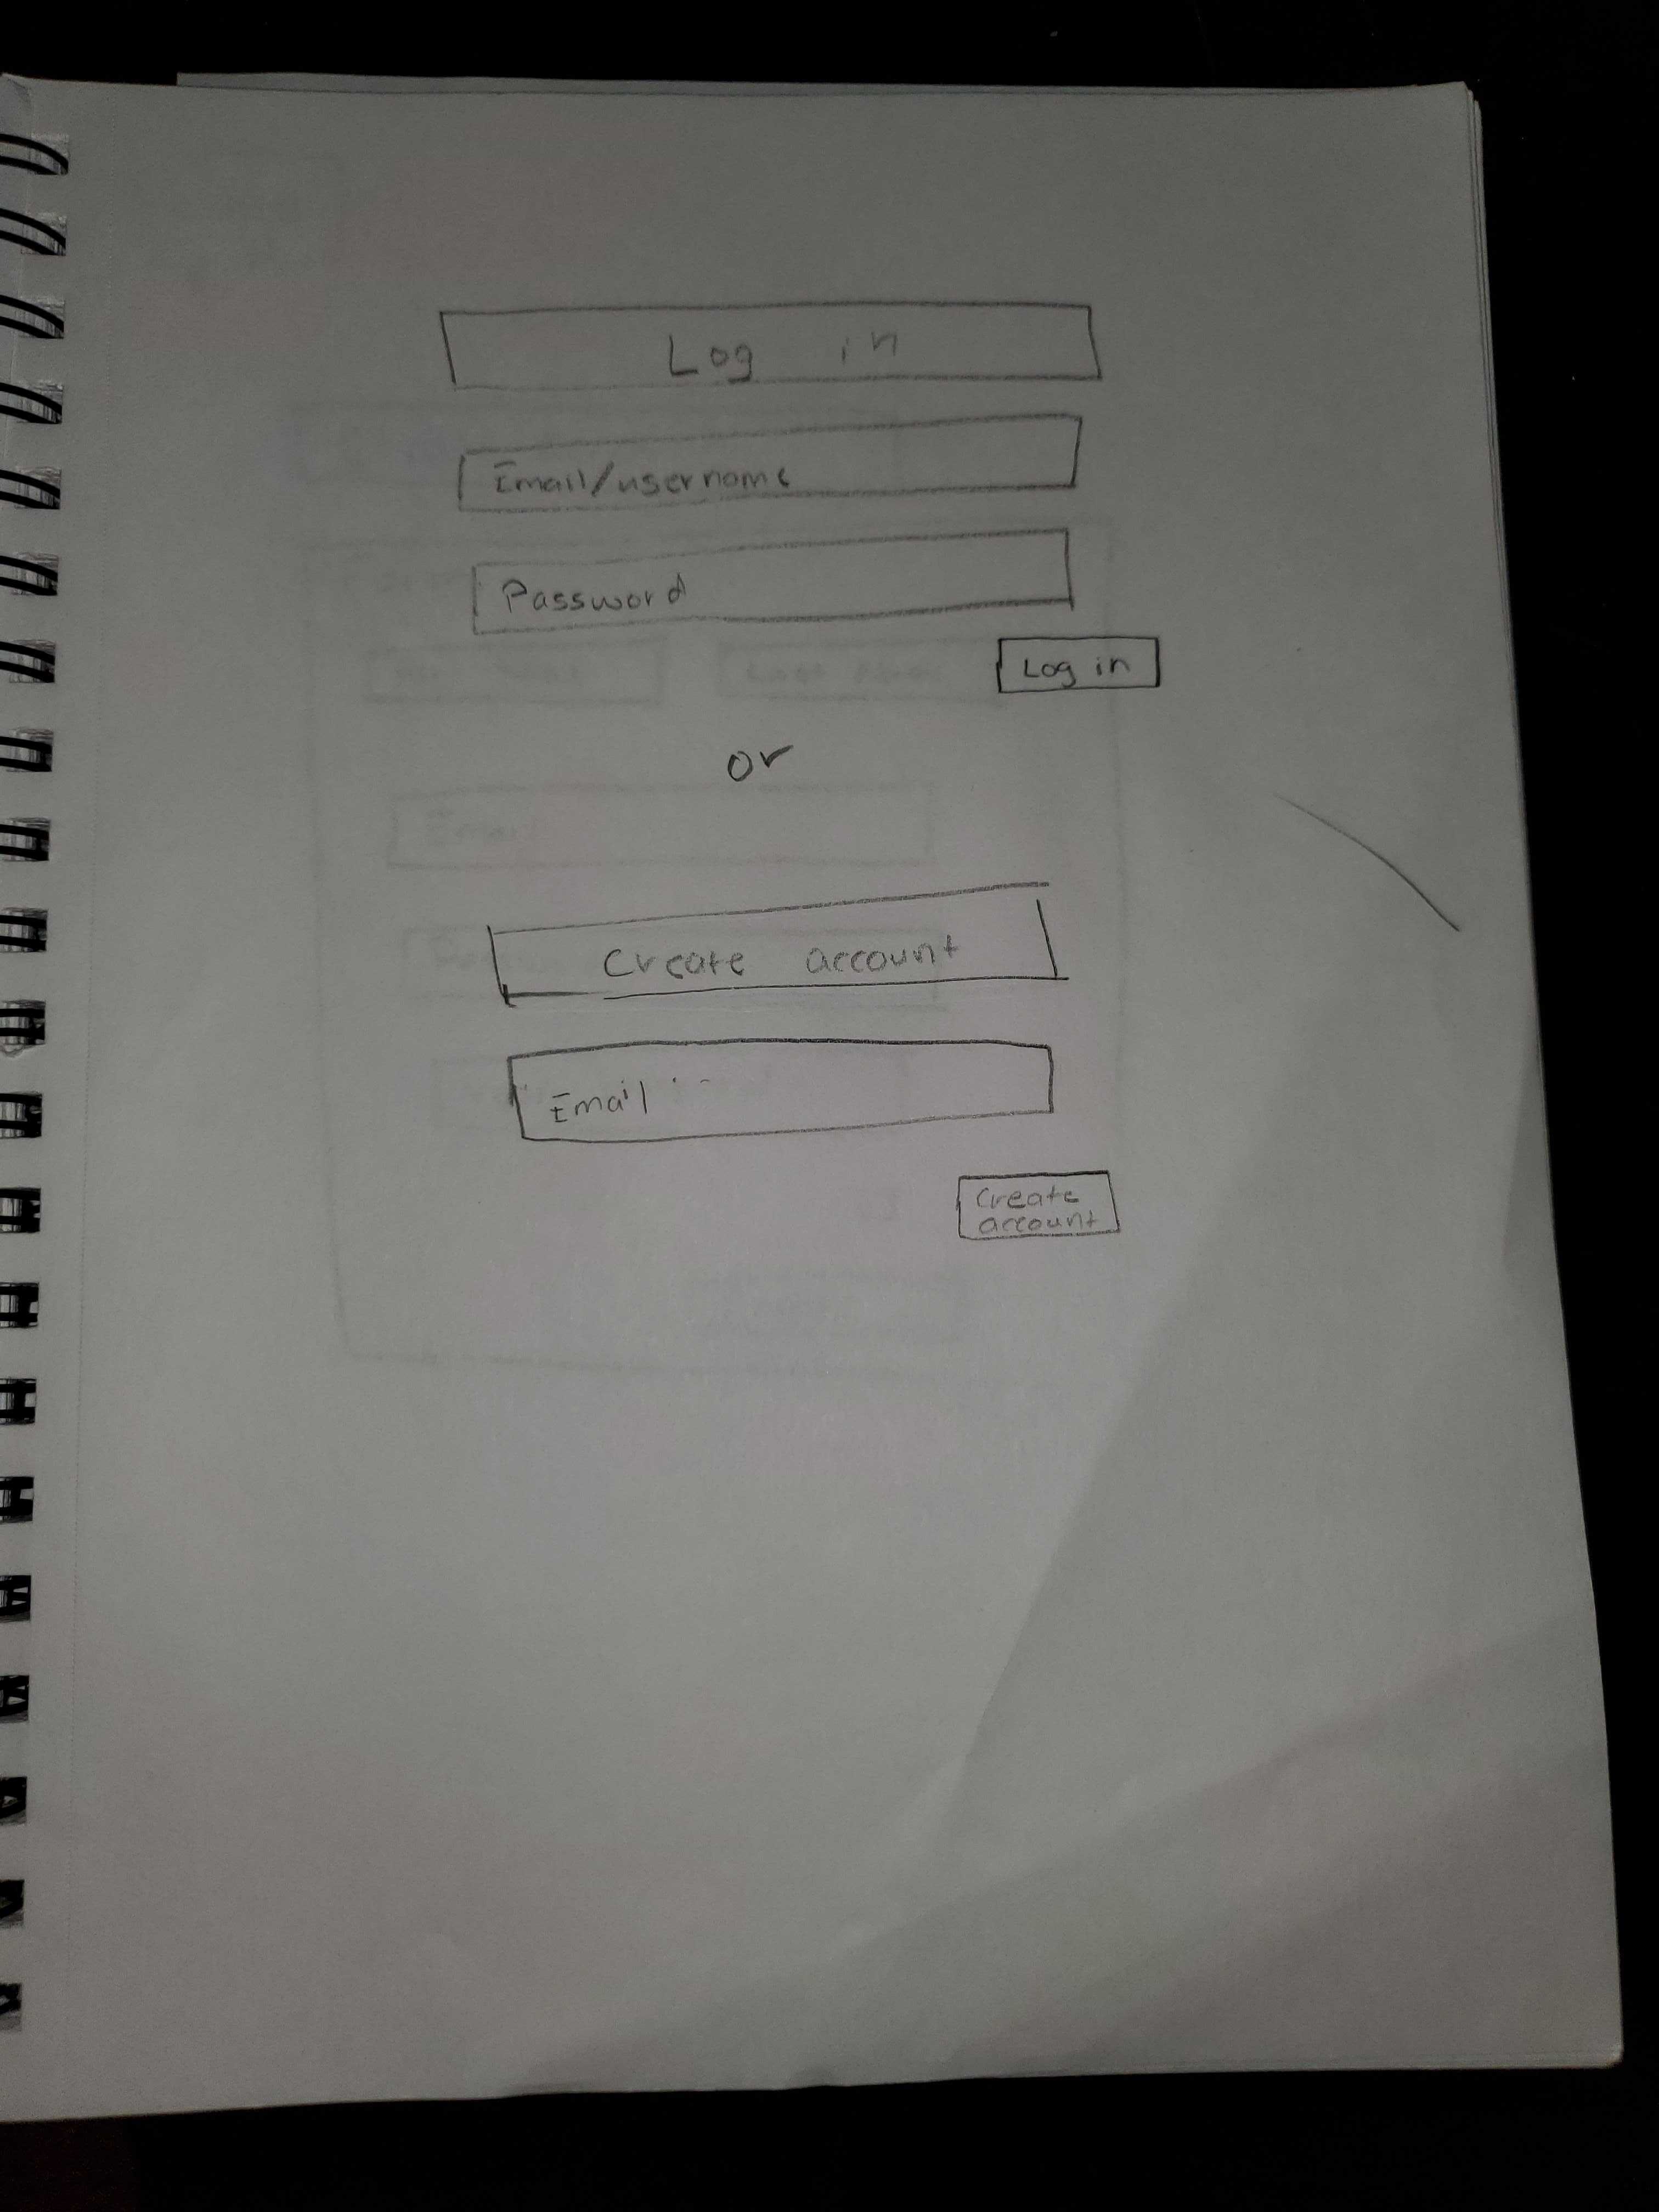 Log in
Email/username
Password
Log in
or
Create account
Email
Create
account